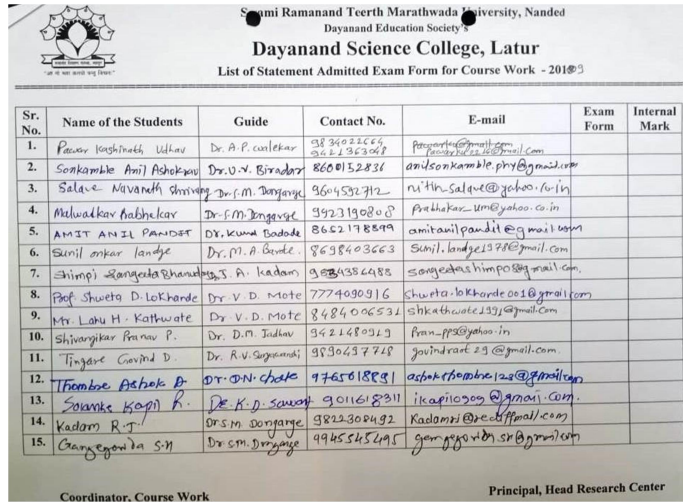 Swami Ramanand Teerth Marathwada University, Nanded
Dayanand Education Society's
Dayanand Science College, Latur
List of Statement Admitted Exam Form for Course Work - 2019
Sr. No. Name of the Students Guide Contact No. E-mail Exam Form Internal Mark
1. Pawar Kashinath Udhav Dr. A.P. 9834022664
9421363048
2. Sonkamble Anil Ashokrav Dr. U.V. Biradar 8600152836 anilsonkamble.phy@gmail.com
3. Salave Navanath Shrirang Dr. S.M. Dongarge 9604592712 nitin-salave@yahoo.co.in
4. Malwadkar Dr. S.M. Dongarge 9923190808 Prabhakar_um@yahoo.co.in
5. AMIT ANIL PANDIT Dr. Kund Badode 8652178899 amitanilpandit@gmail.com
6. Sunil onkar landge Dr. M.A. 8698403663 Sunil.landge1978@gmail.com
7. Shimpi Sangeeta J. A. Kadam
8. Prof. Shweta D. Lokhande Dr. V. D. Mote 7774090916 Shweta.lokhande001@gmail.com
9. Mr. Lahu H. Kathwate Dr. V. D. Mote 8484006531 shkathwate1991@gmail.com
10. Shivangikar Pranav P. Dr. D.M. Jadhav 9421480929 Pran_pps@yahoo.in
11. Tingare Govind D. Dr. R.V. 9890497728 govindraot29@gmail.com.
12. Thombre Ashok D Dr. D.N. 9765618891 ashokthombre123@gmail.com
13. Solanke Kapil R. K.D. Savant 9011618311 ikapil0909@gmail.com.
14. Kadam R.J. Dr S.M. Dongarge 9822308492 Kadamrj@rediffmail.com
15. Gangegorida S.N Dr S.M. Dongarge 9945545495
Coordinator, Course Work Principal, Head Research Center